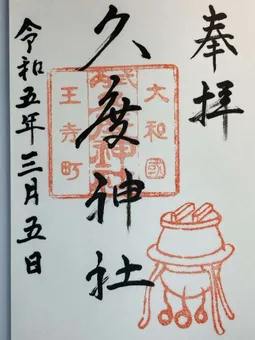 奉拝
久度神社
令和五年三月五日
大和國
王寺町